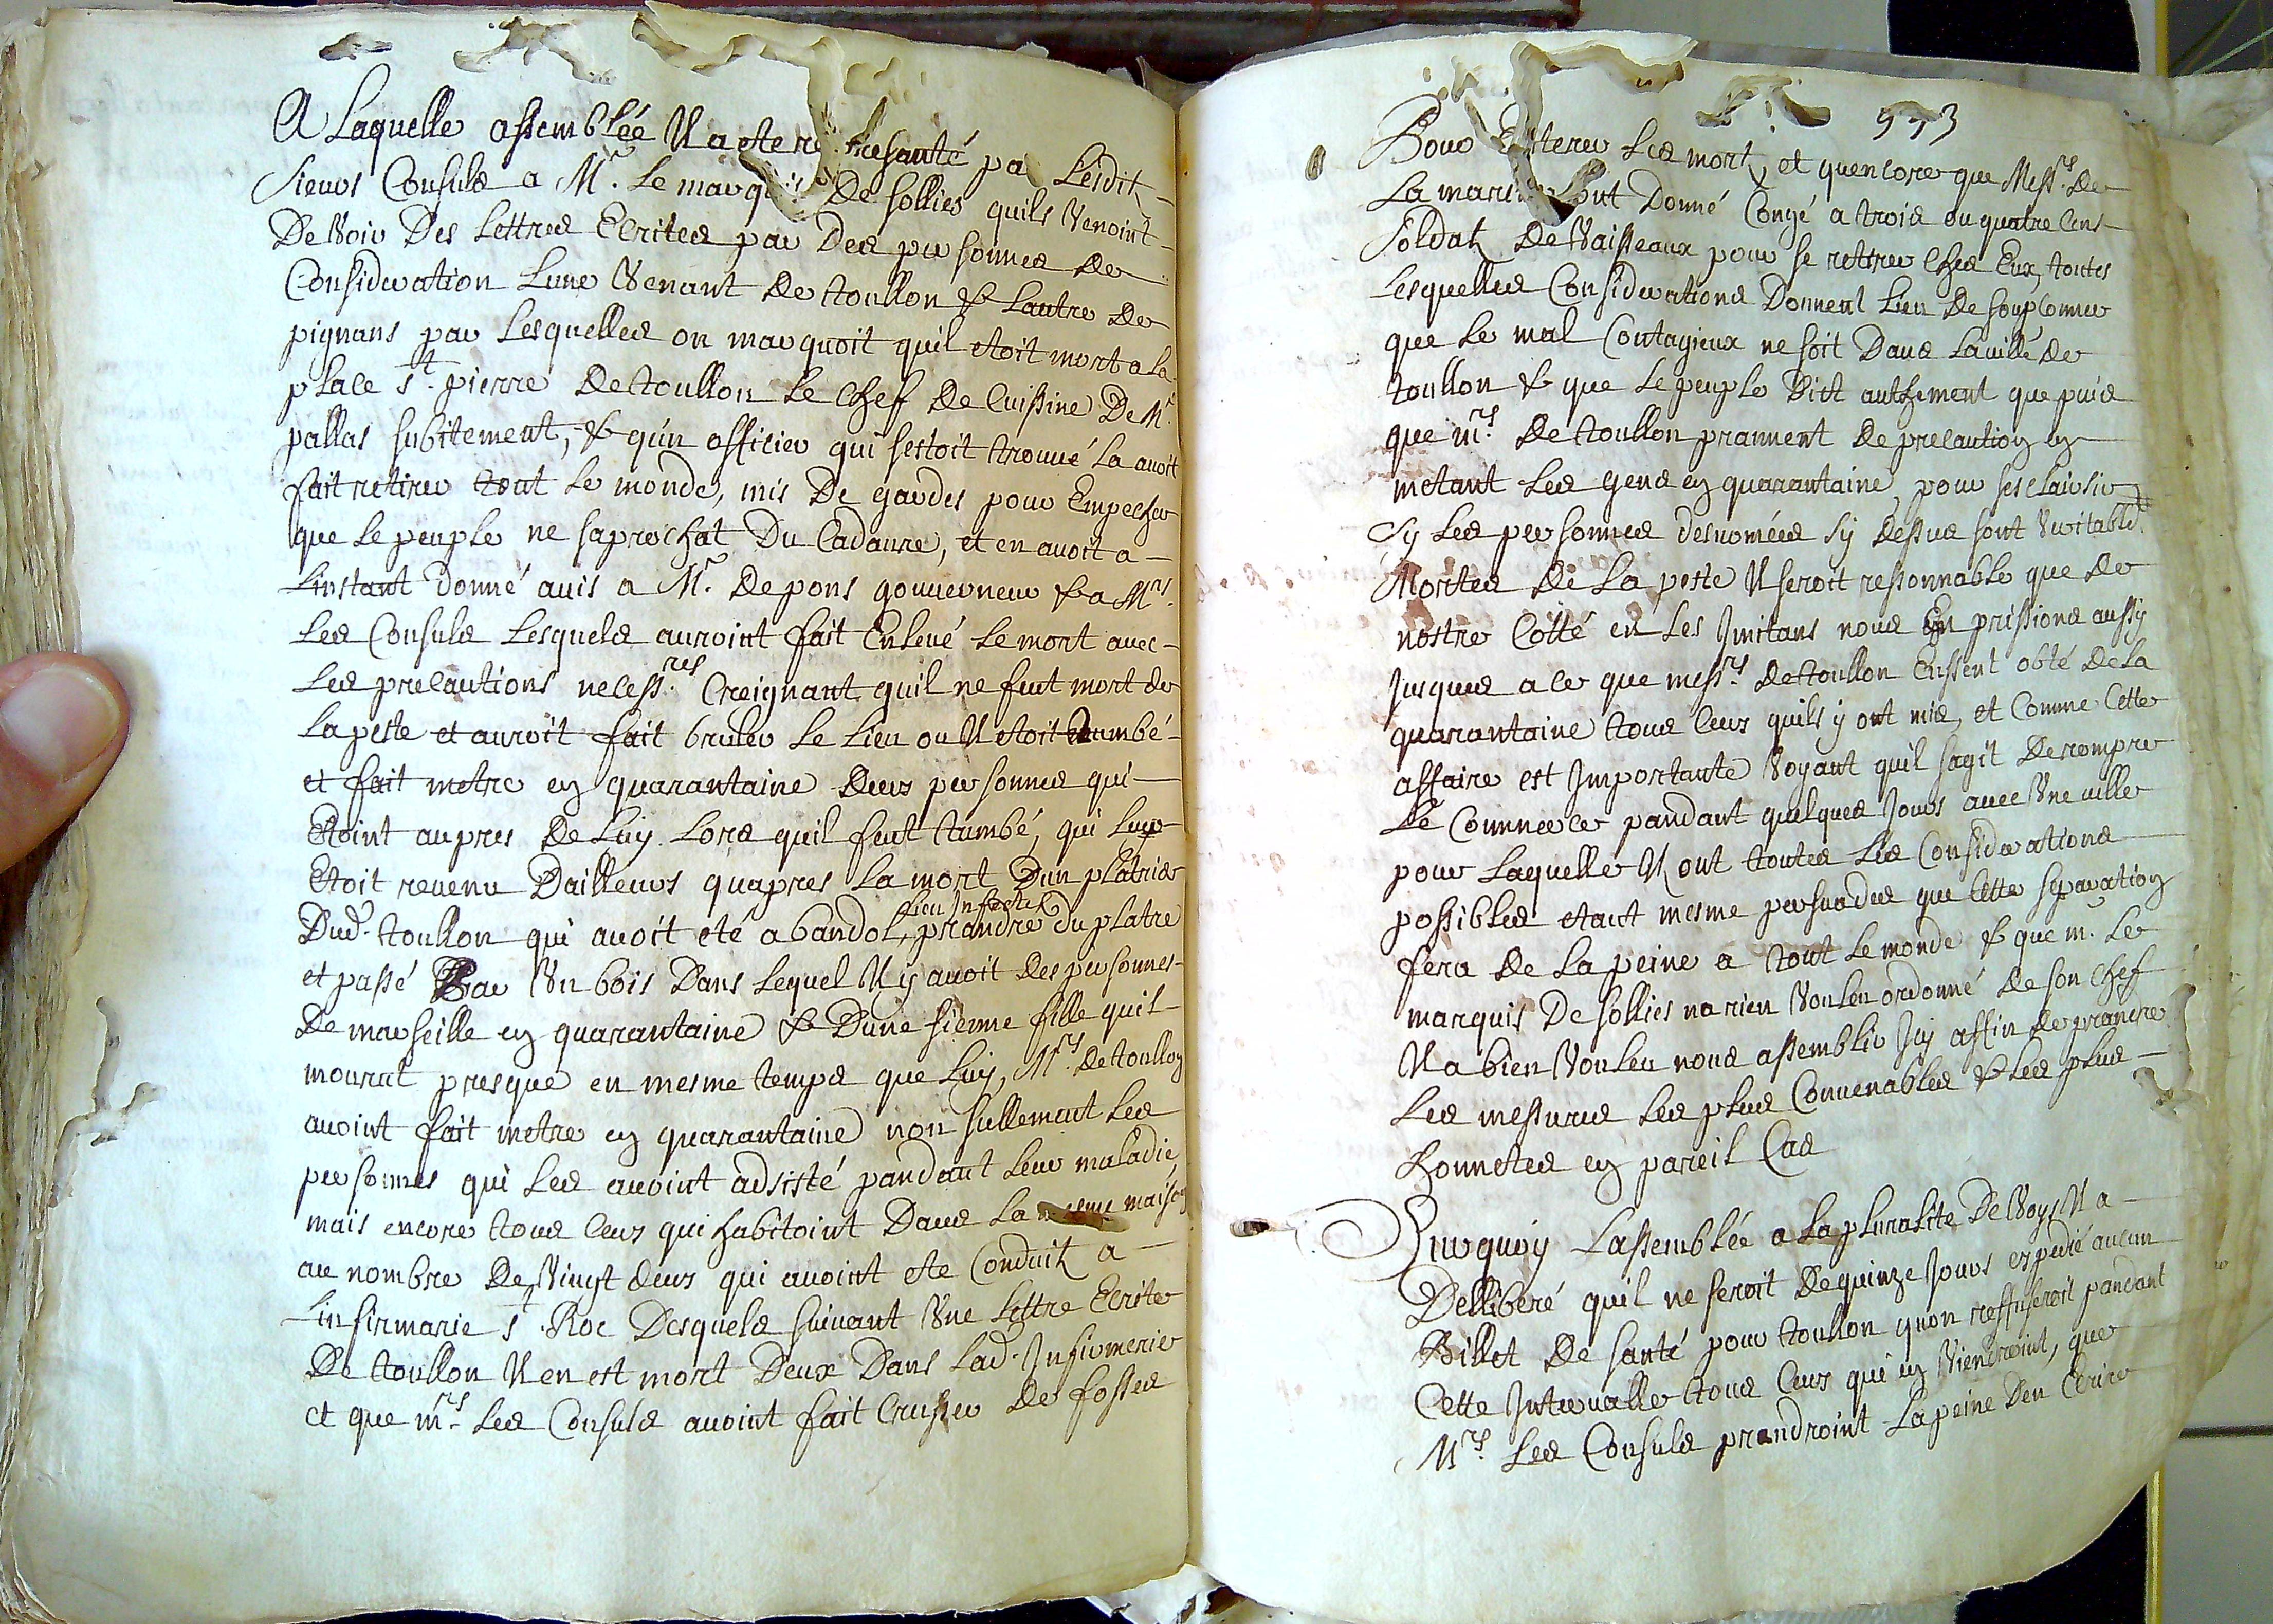 A Laquelle assemblée Il a ete representé par Lesdit
sieurs Consuls a Mr. Le marquis De sollies quils Venoint
De Voir Des Lettres Ecrites par Des personnes de
Consideration Lune Venant De toullon & Lautre de
pignans par Lesquelles on marquoit quil etoit mort a la
place st. pierre De toullon Le chef De Cuissine De Mr.
pallas subitement, & qu'un officier qui sestoit trouvé La avoit
fait retirer tout le monde, mis De gardes pour Empecher
que le peuple ne saprochat Du Cadavre, et en avoit a
Linstant donné avis a Mr. De pons gouverneur & a Mrs.
Les Consuls Lesquels auroint fait Enlevé Le mort avec
Les precautions necessres. Creignant quil ne feut mort de
La peste et auroit fait bruler Le Lieu ou Il etoit tumbé
et fait metre en quarantaine deus personnes qui
Etoint aupres De Luy Lors quil feut tumbé, qui Luy
Etoit revenu Dailleurs quapres La mort Dun platrier
Lieu Infecté
Dud. toullon qui avoit eté a bandol, prandre du platre
et passé Par Un bois Dans Lequel Il y avoit Des personnes
De marseille en quarantaine & Dune sienne fille quil
mourut presque en mesme temps que Luy, Mrs. De toullon
avoint fait metre en quarantaine non sullement Les
personnes qui Les avoint adsisté pandant Leur maladie
mais encore tous Ceus qui habitoint Dans La mesme maison
au nombre De Vingt deus qui avoint ete Conduit a
Linfirmarie st. Roc Desquels suivant Une Lettre Ecrite
De toullon Il en est mort Deux Dans Lad. Infirmerie
et que mrs. Les Consuls avoint fait Cruser De fosses
573
Pour Enterer Les mort, et quencore que Messrs. De
La marine ont Donné Congé a trois ou quatre Cens
soldats De Vaisseaux pour se retirer Ches Eux, toutes
Lesquelles Considerations Donnent Lieu De soupconner
que Le mal Contagieux ne soit Dans La ville de
toullon & que Le peuple Dict authement que puis
que mrs. De toullon prannent De precaution en
metant Les gens en quarantaine pour sesclairsir
sy Les personnes desnomées sy dessus sont Veritable
Mortes De La peste Il seroit ressonnable que de
nostre Cotté en Les Imitans nous En prissions aussy
Jusques a ce que messrs. De toullon Eussent obté De La
quarantaine tous Ceus quils y ont mis, et Comme Cette
affaire est Importante Voyant quil sagit De rompre
Le Commerce pandant quelques Jours avec Une ville
pour Laquelle Il ont toutes Les Considerations
possibles etant mesme persuades que Cette separation
fera De La peine a tout Le monde & que mr. Le
marquis De sollies na rien Vouleu ordonné De son chef
Il a bien Vouleu nous assembler Icy affin de prandre
Les messures Les plus Convenables & Les plus
honnetes en pareil Cas
Surquoy Lassemblée a La pluralite De Voys Il a
Dellibéré quil ne seroit De quinze Jours expedié aucun
Billet De santé pour toullon quon reffuseroit pandant
Cette Intervalle tous Ceus qui en Viendroint, que
Mrs. Les Consuls prandroint La peine Den Ecrire